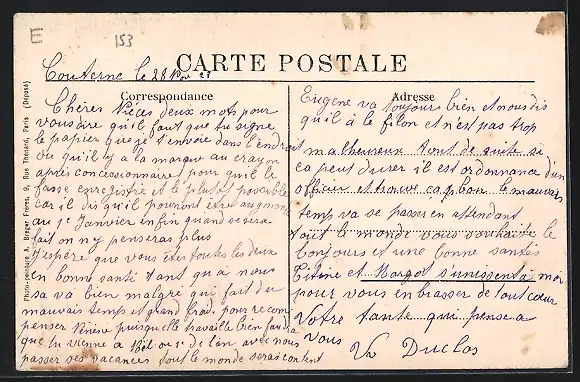 E
153
CARTE POSTALE
Couterne le 28 Nov 23
Correspondance
Chères Nièces deux mots pour
vous dire qu'il faut que tu signe
le papier que je t'envoie dans l'endroit
ou qu'il y a la marque au crayon
après concessionnaire pour qu'il le
fasse enregistré et le plutot possible
car il dis qu'il pourront être augmenté
au 1e Janvier enfin quand se sera
fait on n'y penseras plus
J'espère que vous êtes toutes les deux
en bonne santé tant qu'à nous
sa va bien malgré qui fait du
mauvais temps et grand froid pour recom
penser puisquelle travaille bien faudra
que tu vienne à Noël ou 1e de l'an avec nous
passer ses vacances tout le monde serais content
Adresse
Eugène va toujours bien et nous dis
qu'il à le filon et n'est pas trop
malheureux tout de suite si
ca peut durer il est ordonnance d'un
officier et trouve ca bon le mauvais
temps va se passer en attendant
tout le monde vous souhaite le
bonjours et une bonne santée
Titine et Margot s'unissent à moi
pour vous enbrasser de tout cœur
Votre tante qui pense a
vous
Vve Duclos
Photo-mécanique A. Breger Frères, 9, Rue Thénard, Paris (Déposé)